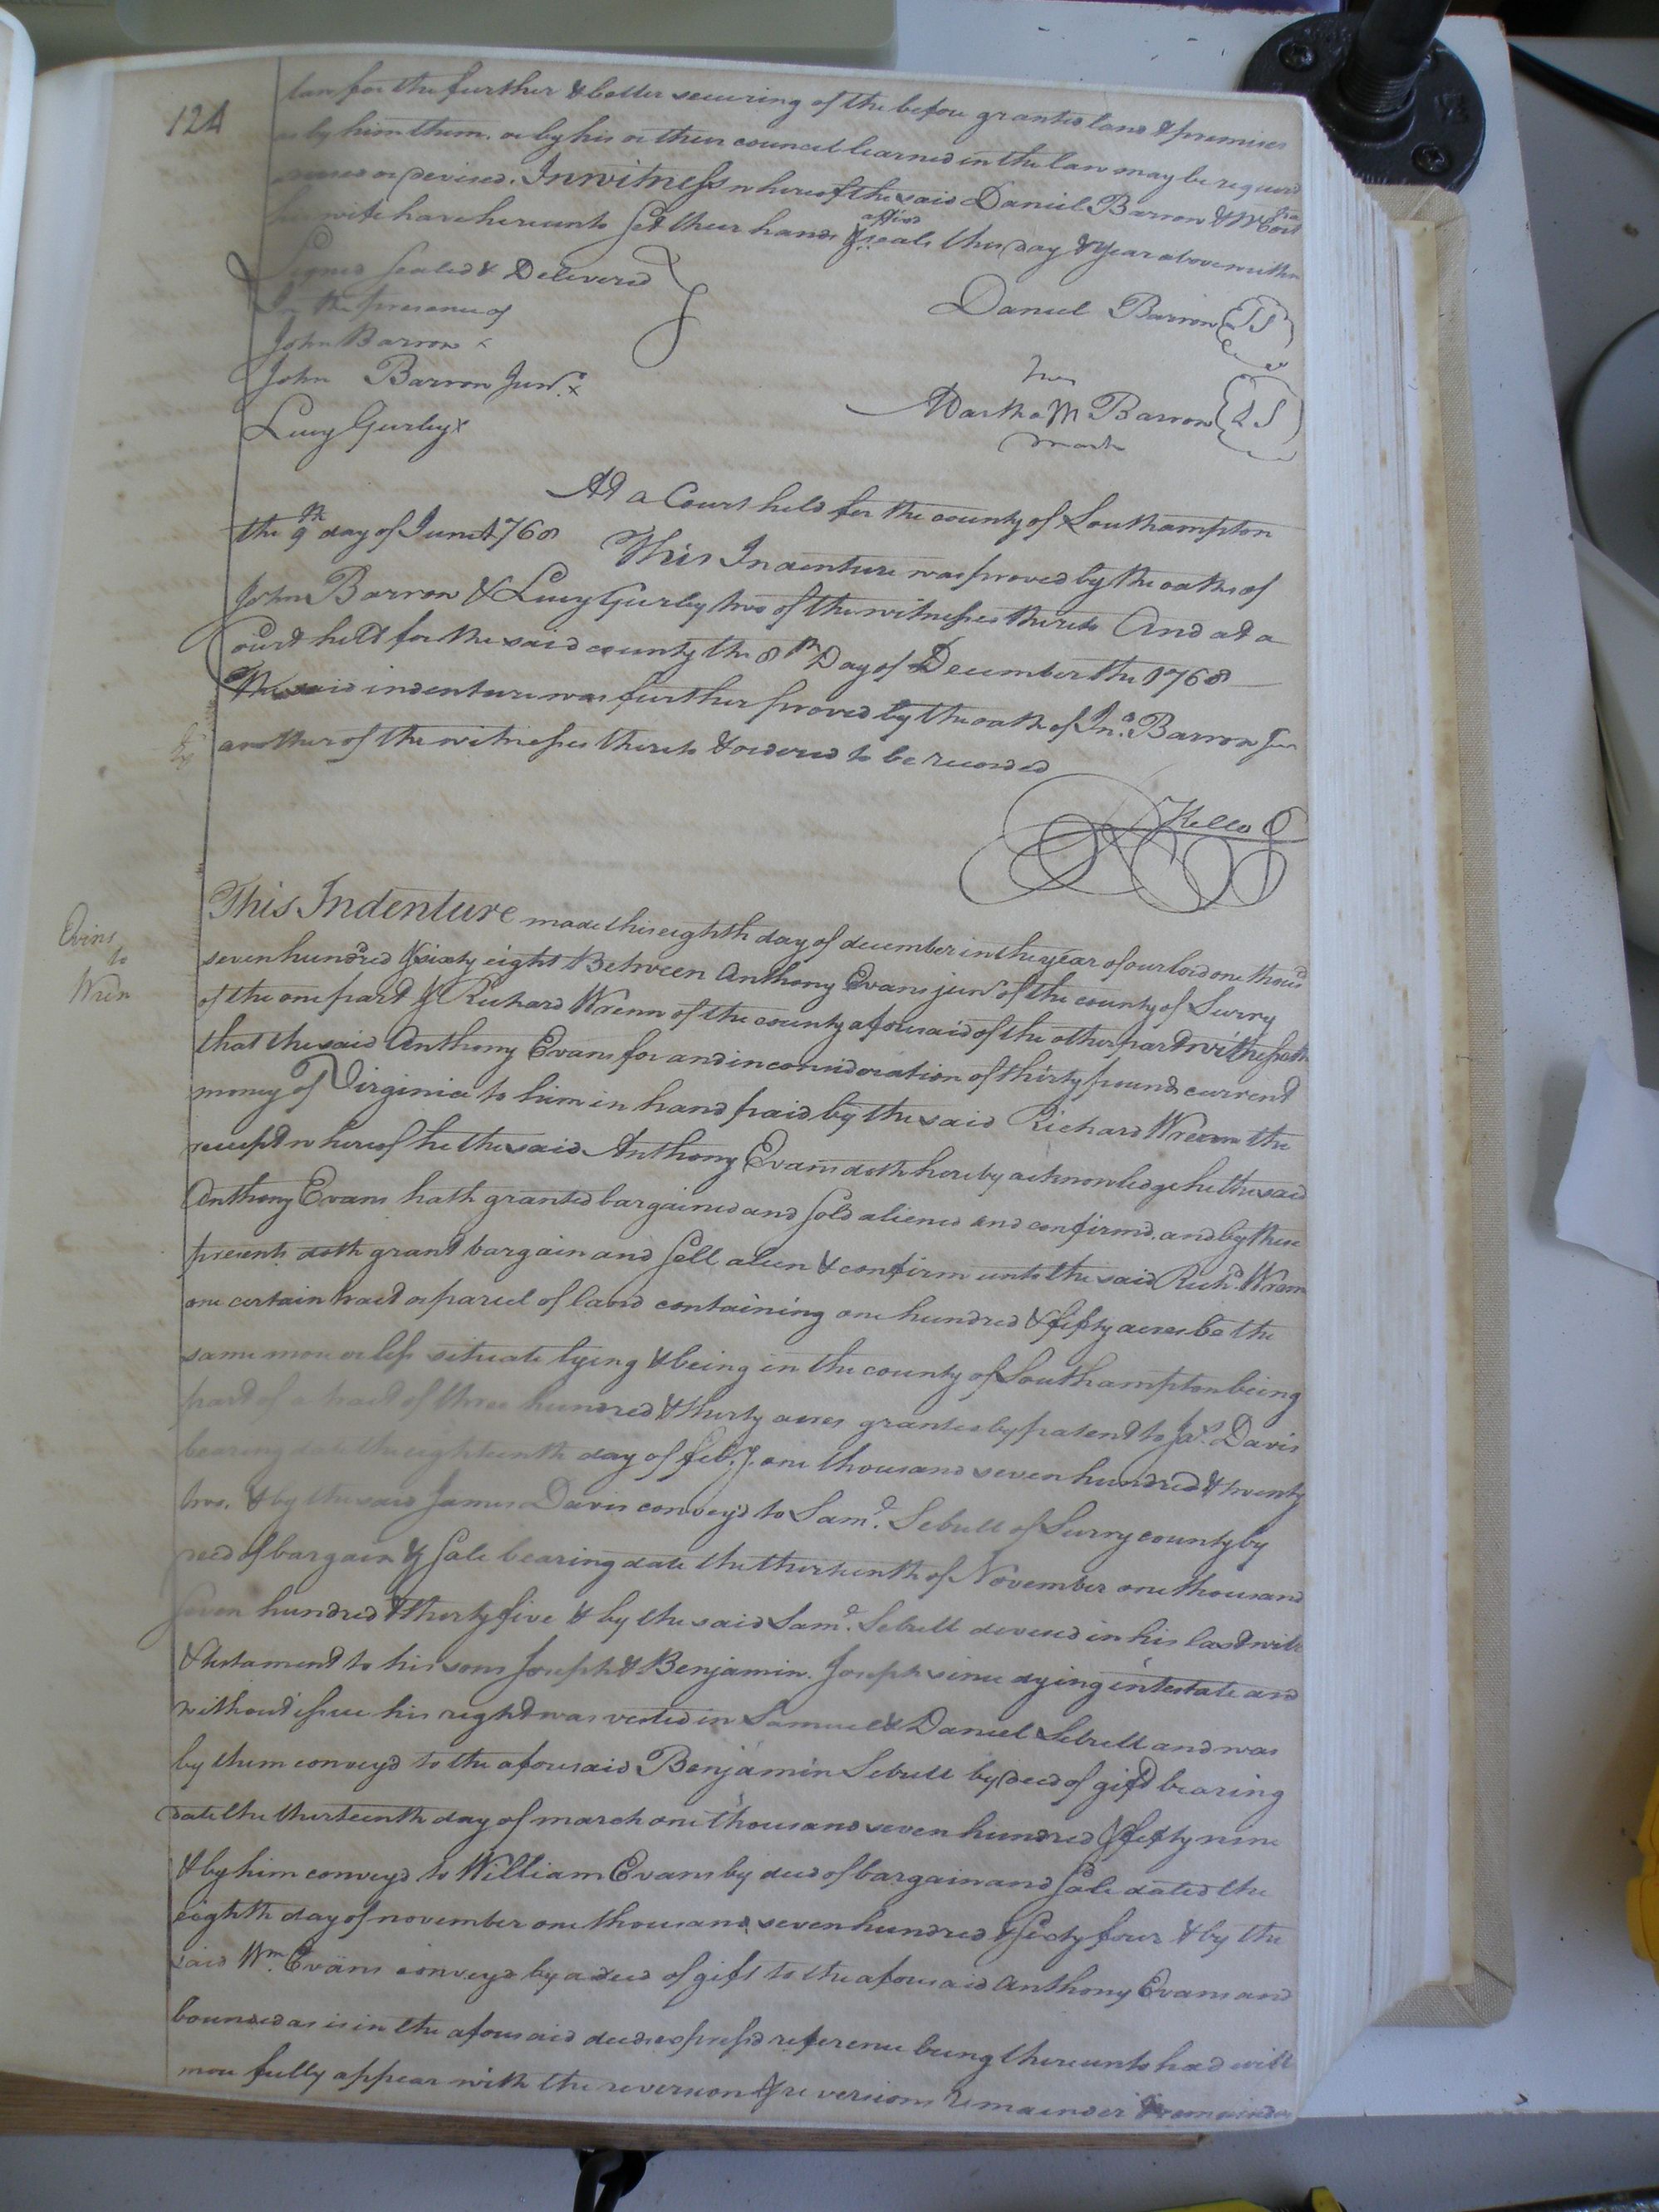 124
law for the further & better securing of the before granted land & premises
as by him them. or by his or their council learned in the law may be required
or devised. In witness whereof the said Daniel Barron &
his wife have hereunto set their hands & affixd seals this day & year above written
Signed Sealed & Delivered
In the presence of
John Barron x
John Barron Junr. x
Lucy Gurley x
Daniel Barron LS
her
Martha M Barron LS
mark
At a Court held for the county of Southampton
the 9th day of June 1768 This Indenture was proved by the oaths of
John Barron & Lucy Gurley two of the witnesses thereto And at a
Court held for the said county the 8th Day of December the 1768
The said indenture was further proved by the oath of Jno. Barron Jun
another of the witnesses thereto & ordered to be recorded
Kello
Evins
to
Wren
This Indenture made this eighth day of december in the year of our lord one thousd
seven hundred & sixty eight Between Anthony Evans junr of the county of Surry
of the one part & Richard Wrenn of the county aforesaid of the other part witnesseth
that the said Anthony Evans for and in consideration of thirty pounds current
money of Virginia to him in hand paid by the said Richard Wrenn the
receipt whereof he the said Anthony Evans doth hereby acknowledge he the said
Anthony Evans hath granted bargained and sold aliened and confirmd. and by these
presents doth grant bargain and sell alien & confirm unto the said Richd. Wrenn
one certain tract or parcel of land containing one hundred & fifty acres be the
same more or less situate lying & being in the county of Southampton being
part of a tract of three hundred & thirty acres granted by patent to Jas. Davis
bearing date the eighteenth day of feby. one thousand seven hundred & twenty
two. & by the said James Davis convey'd to Saml. Sebrell of Surry county by
deed of bargain & sale bearing date the thirteenth of November one thousand
seven hundred & thirty five & by the said Saml. Sebrell devised in his last will
& testament to his sons Joseph & Benjamin. Joseph since dying intestate and
without issue his right was vested in Samuel & Daniel Sebrell and was
by them convey'd to the aforesaid Benjamin Sebrell by deed of gift bearing
date the thirteenth day of march one thousand seven hundred & fifty nine
& by him convey'd to William Evans by deed of bargain and sale dated the
eighth day of november one thousand seven hundred & sixty four & by the
said Wm. Evans conveyd by a deed of gift to the aforesaid Anthony Evans and
bounded as is in the aforesaid deeds expressd reference being thereunto had will
more fully appear with the reversion & reversions remainder & remainders